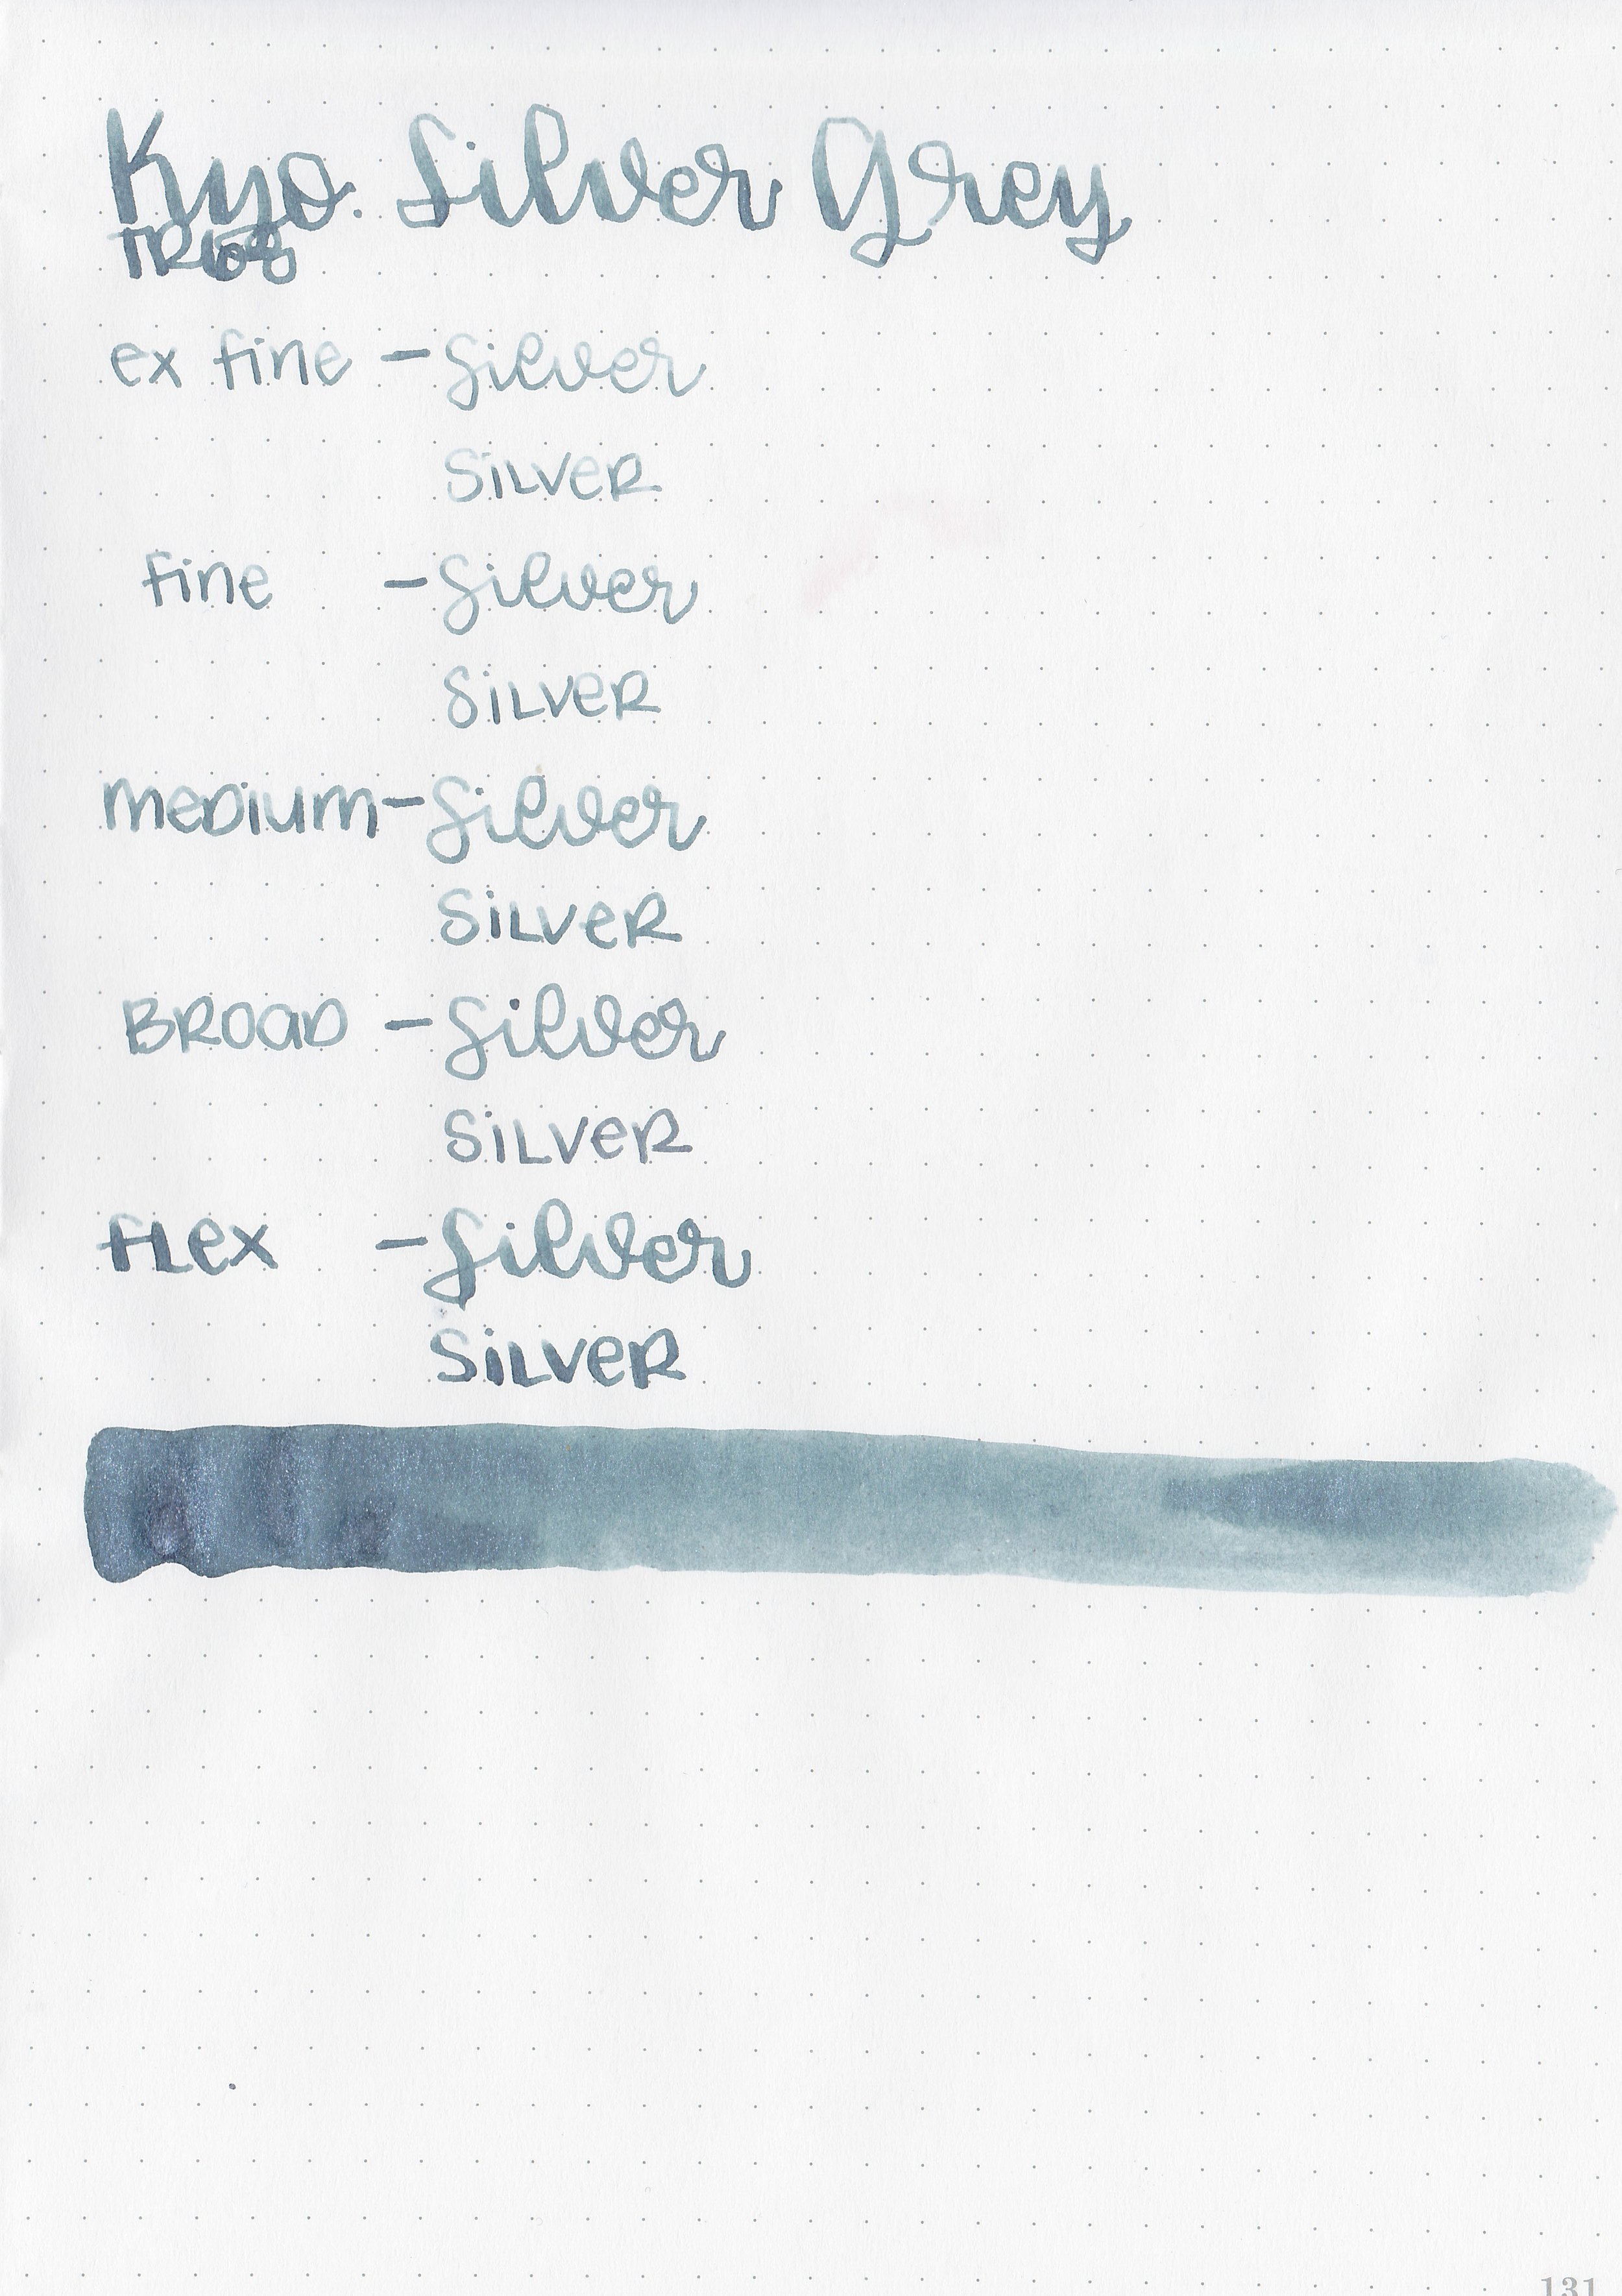 Kyo. Silver Grey
TR68
ex fine - Silver
SiLVeR
fine - Silver
SiLVeR
meDium - Silver
SiLVeR
BROaD - Silver
SiLVeR
fLex - Silver
SiLVeR
131